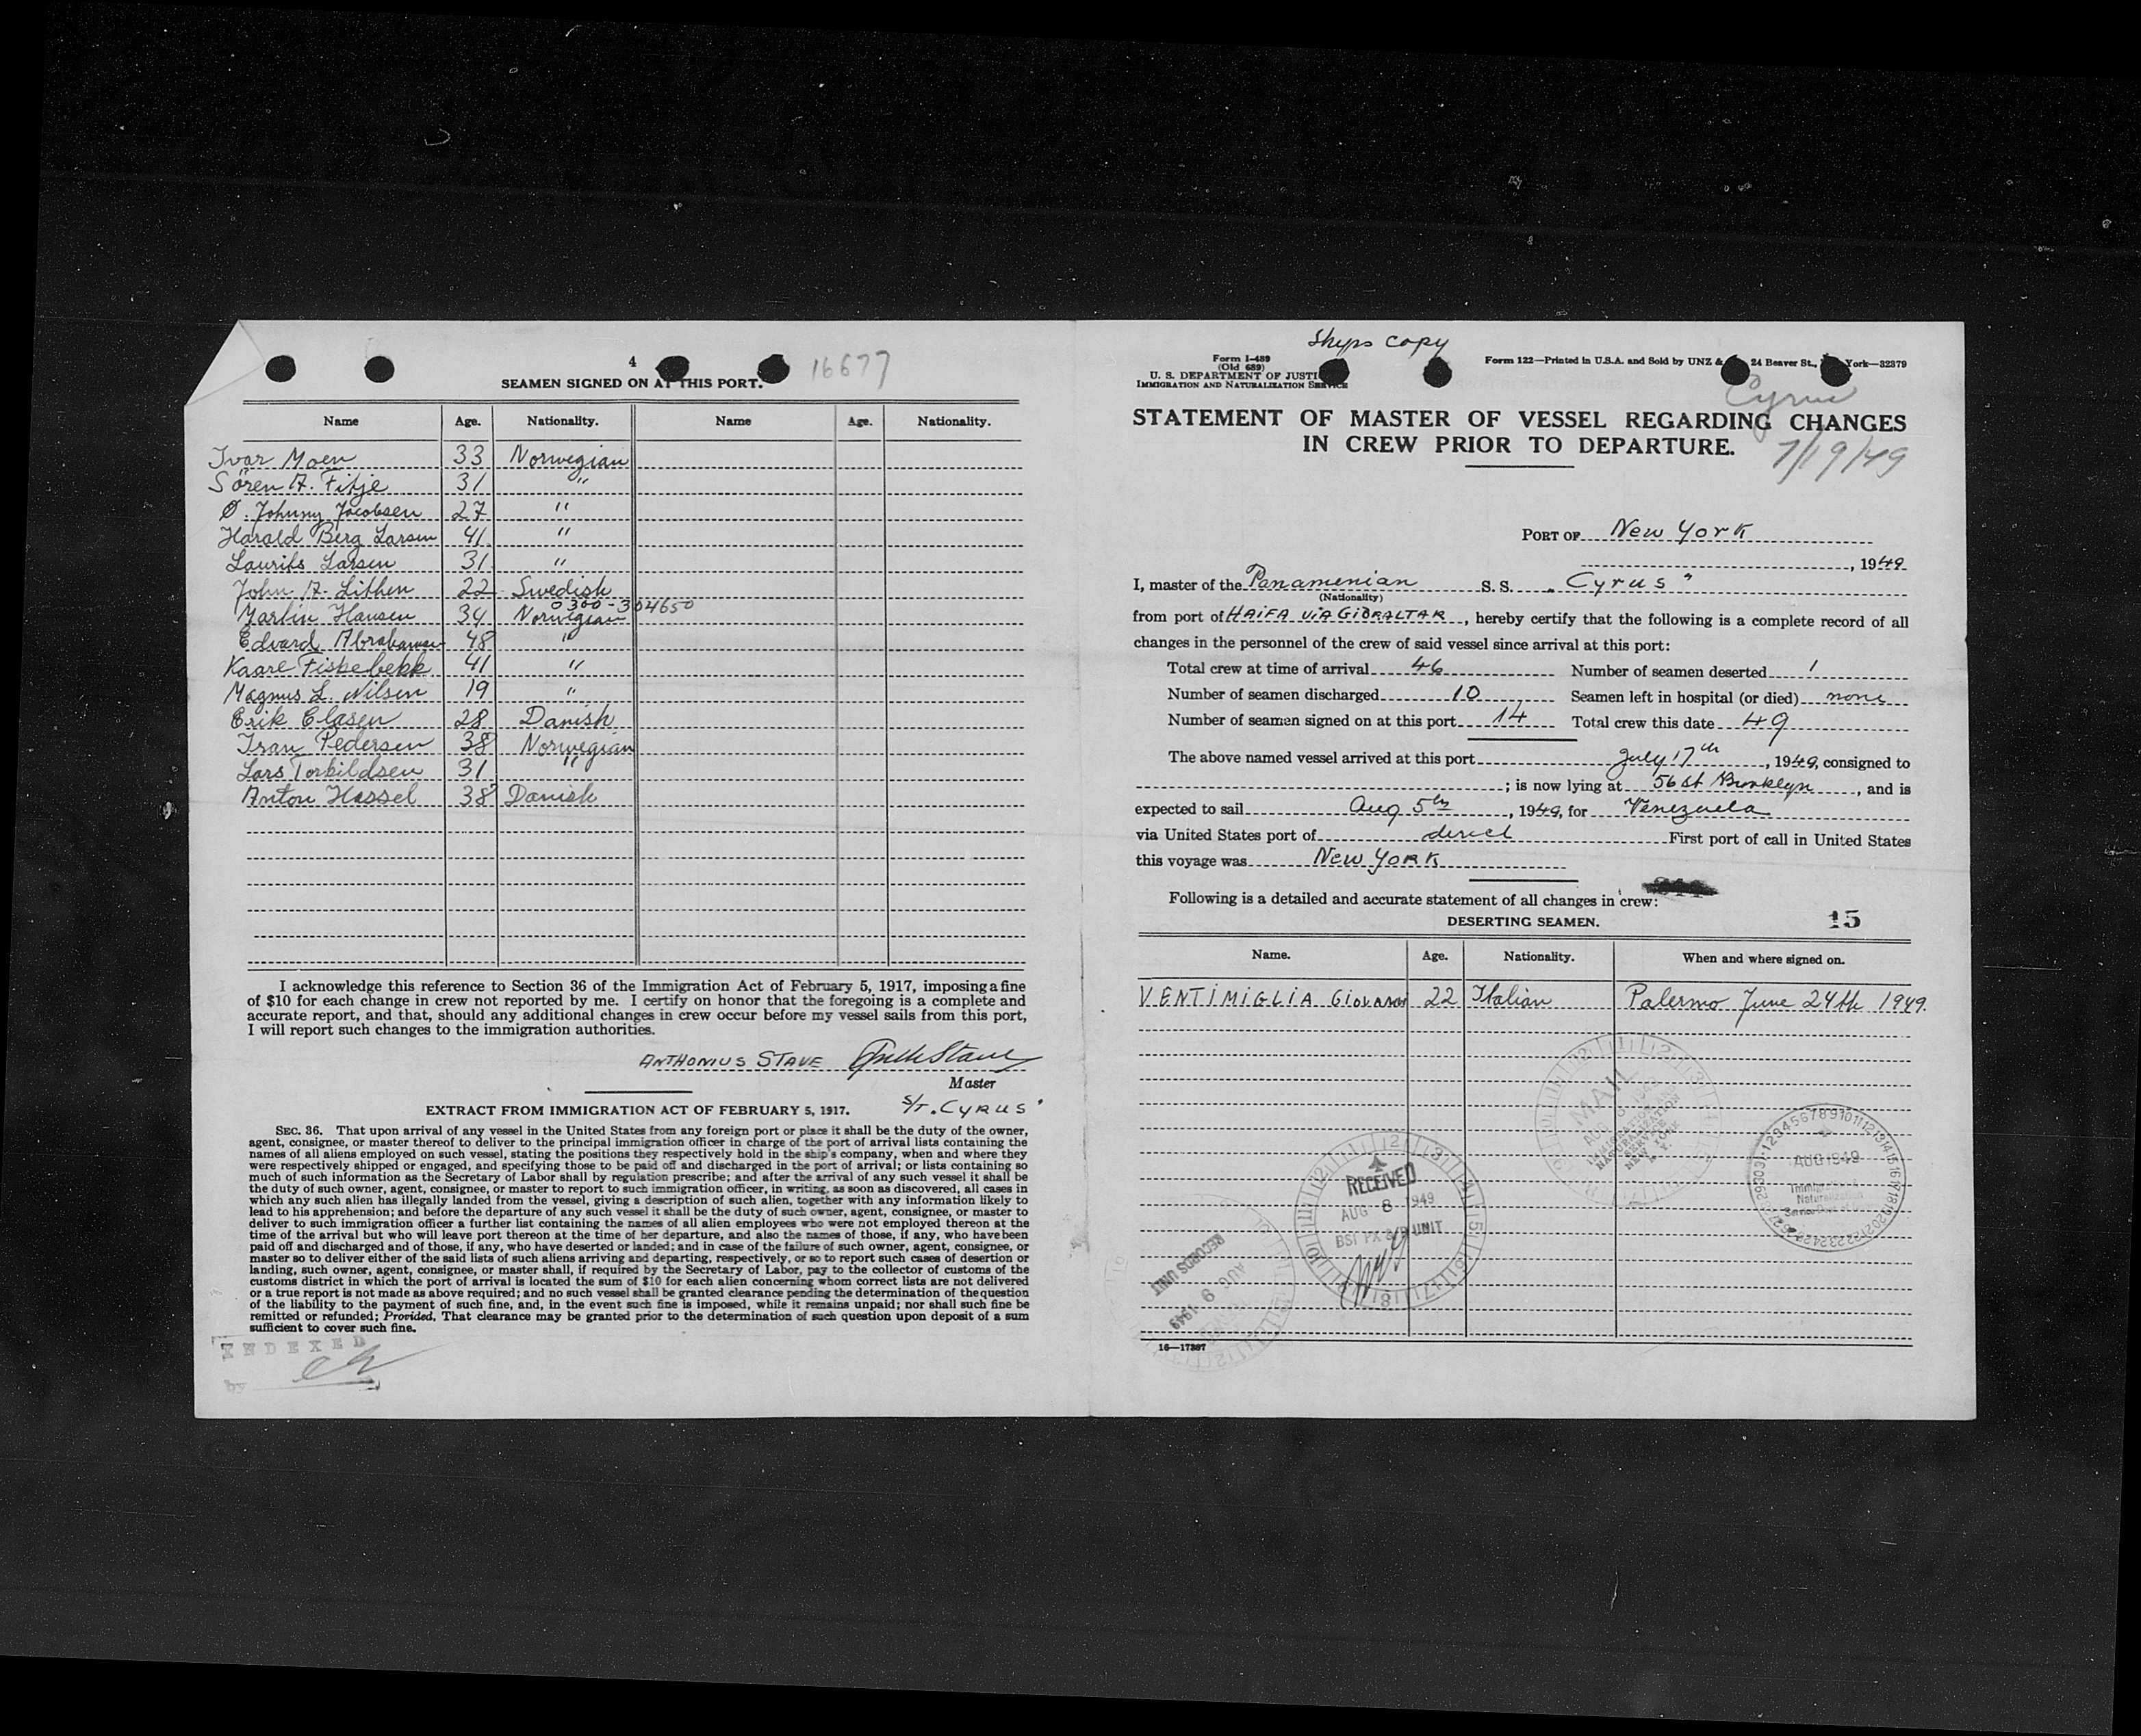 4
16677
SEAMEN SIGNED ON AT THIS PORT.
Name Age. Nationality. Name Age. Nationality.
Ivar Moen 33 Norwegian
Sören A. Fitje 31 "
Ø. Johnny Jacobsen 27 "
Harald Berg Larsen 41 "
Laurits Larsen 31 "
John A. Lithen 22 Swedish
0300-304650
Martin Hansen 34 Norwegian
Edvard Abrahamsen 48 "
Kaare Fiskebekk 41 "
Magnus L. Nilsen 19 "
Erik Clasen 28 Danish
Ivan Pedersen 38 Norwegian
Lars Torkildsen 31 "
Anton Hassel 38 Danish
I acknowledge this reference to Section 36 of the Immigration Act of February 5, 1917, imposing a fine
of $10 for each change in crew not reported by me. I certify on honor that the foregoing is a complete and
accurate report, and that, should any additional changes in crew occur before my vessel sails from this port,
I will report such changes to the immigration authorities.
ANTHONIUS STAVE
Master
S/T. "CYRUS"
EXTRACT FROM IMMIGRATION ACT OF FEBRUARY 5, 1917.
SEC. 36. That upon arrival of any vessel in the United States from any foreign port or place it shall be the duty of the owner,
agent, consignee, or master thereof to deliver to the principal immigration officer in charge of the port of arrival lists containing the
names of all aliens employed on such vessel, stating the positions they respectively hold in the ship's company, when and where they
were respectively shipped or engaged, and specifying those to be paid off and discharged in the port of arrival; or lists containing so
much of such information as the Secretary of Labor shall by regulation prescribe; and after the arrival of any such vessel it shall be
the duty of such owner, agent, consignee, or master to report to such immigration officer, in writing, as soon as discovered, all cases in
which any such alien has illegally landed from the vessel, giving a description of such alien, together with any information likely to
lead to his apprehension; and before the departure of any such vessel it shall be the duty of such owner, agent, consignee, or master to
deliver to such immigration officer a further list containing the names of all alien employees who were not employed thereon at the
time of the arrival but who will leave port thereon at the time of her departure, and also the names of those, if any, who have been
paid off and discharged and of those, if any, who have deserted or landed; and in case of the failure of such owner, agent, consignee, or
master so to deliver either of the said lists of such aliens arriving and departing, respectively, or so to report such cases of desertion or
landing, such owner, agent, consignee, or master shall, if required by the Secretary of Labor, pay to the collector of customs of the
customs district in which the port of arrival is located the sum of $10 for each alien concerning whom correct lists are not delivered
or a true report is not made as above required; and no such vessel shall be granted clearance pending the determination of the question
of the liability to the payment of such fine, and, in the event such fine is imposed, while it remains unpaid; nor shall such fine be
remitted or refunded; Provided, That clearance may be granted prior to the determination of such question upon deposit of a sum
sufficient to cover such fine.
INDEXED
by
Ships copy
Form I-489
(Old 689)
U. S. DEPARTMENT OF JUSTICE
IMMIGRATION AND NATURALIZATION SERVICE
Form 122—Printed in U.S.A. and Sold by UNZ & 24 Beaver St., York—32379
Cyrus
7/19/49
STATEMENT OF MASTER OF VESSEL REGARDING CHANGES
IN CREW PRIOR TO DEPARTURE.
PORT OF New York
, 1949
I, master of the Panamenian S. S. "Cyrus"
(Nationality)
from port of HAIFA VIA GIBRALTAR, hereby certify that the following is a complete record of all
changes in the personnel of the crew of said vessel since arrival at this port:
Total crew at time of arrival 46 Number of seamen deserted 1
Number of seamen discharged 10 Seamen left in hospital (or died) none
Number of seamen signed on at this port 14 Total crew this date 49
The above named vessel arrived at this port July 17th, 1949, consigned to
; is now lying at 56 St Brooklyn, and is
expected to sail Aug 5th, 1949, for Venezuela
via United States port of direct First port of call in United States
this voyage was New York
Following is a detailed and accurate statement of all changes in crew:
DESERTING SEAMEN.
15
Name. Age. Nationality. When and where signed on.
VENTIMIGLIA Giovanni 22 Italian Palermo June 24th 1949.
MAIL
AUG 1949
IMMIGRATION AND
NATURALIZATION
SERVICE
NEW YORK
RECEIVED
AUG 8 1949
AUG 1949
Immigration &
Naturalization
RECORDS UNIT
AUG 9 1949
16—17397